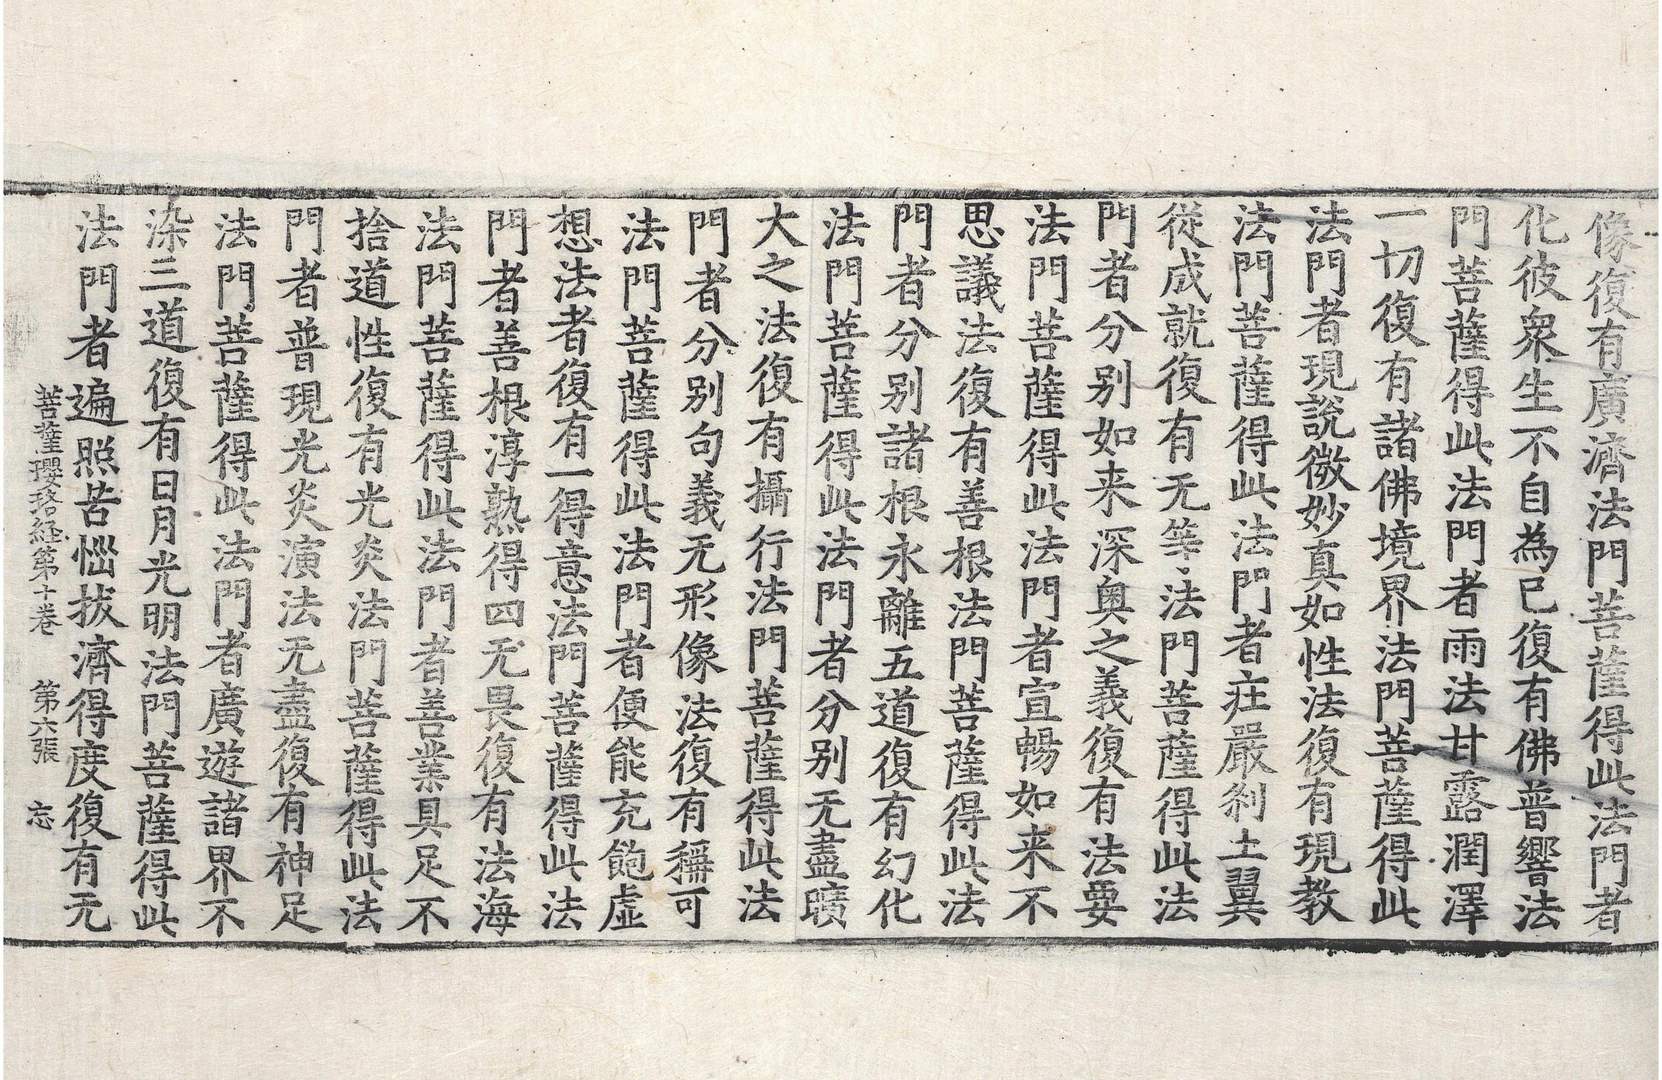 像復有廣濟法門菩薩得此法門者
化彼衆生不自為已復有佛普響法
門菩薩得此法門者雨法甘露潤澤
一切復有諸佛境界法門菩薩得此
法門者現說微妙真如性法復有現教
法門菩薩得此法門者庄嚴剎土翼
從成就復有无等法門菩薩得此法
門者分别如来深奥之義復有法要
法門菩薩得此法門者宣暢如来不
思議法復有善根法門菩薩得此法
門者分别諸根永離五道復有幻化
法門菩薩得此法門者分别无盡曠
大之法復有攝行法門菩薩得此法
門者分别句義无形像法復有稱可
法門菩薩得此法門者便能充飽虛
想法者復有一得意法門菩薩得此法
門者善根淳熟得四无畏復有法海
法門菩薩得此法門者善業具足不
捨道性復有光炎法門菩薩得此法
門者普現光炎演法无盡復有神足
法門菩薩得此法門者廣遊諸界不
染三道復有日月光明法門菩薩得此
法門者遍照苦惱拔濟得度復有无
菩薩瓔珞経第十卷　第六張　忘